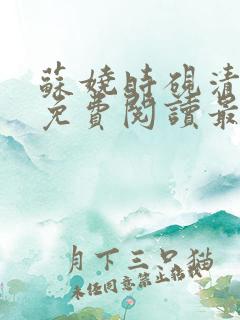 蘇嬈時硯清
免費閱讀最
月下三只猫
未经同意禁止转载